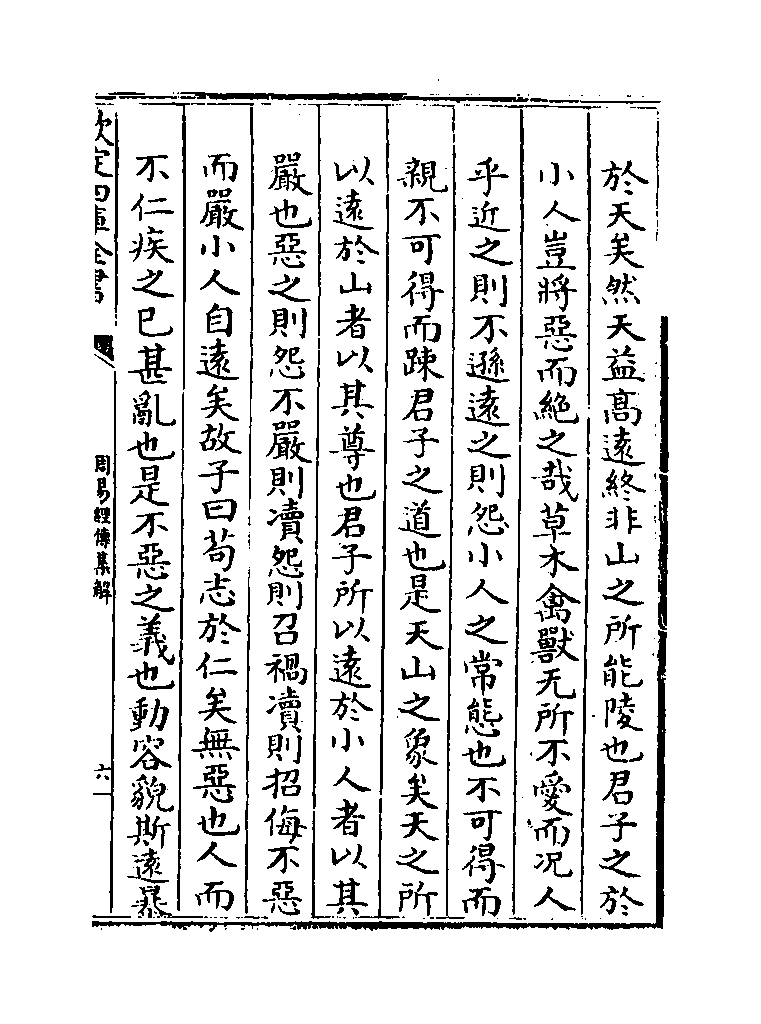 於天矣然天益髙遠終非山之所能陵也君子之於
小人豈將惡而絶之哉草木禽獸无所不愛而况人
乎近之則不遜遠之則怨小人之常態也不可得而
親不可得而踈君子之道也是天山之象矣天之所
以遠於山者以其尊也君子所以遠於小人者以其
嚴也惡之則怨不嚴則凟怨則召禍凟則招侮不惡
而嚴小人自遠矣故子曰苟志於仁矣無惡也人而
不仁疾之已甚亂也是不惡之義也動容貌斯遠暴
欽定四庫全書
周易經傳集解
六一